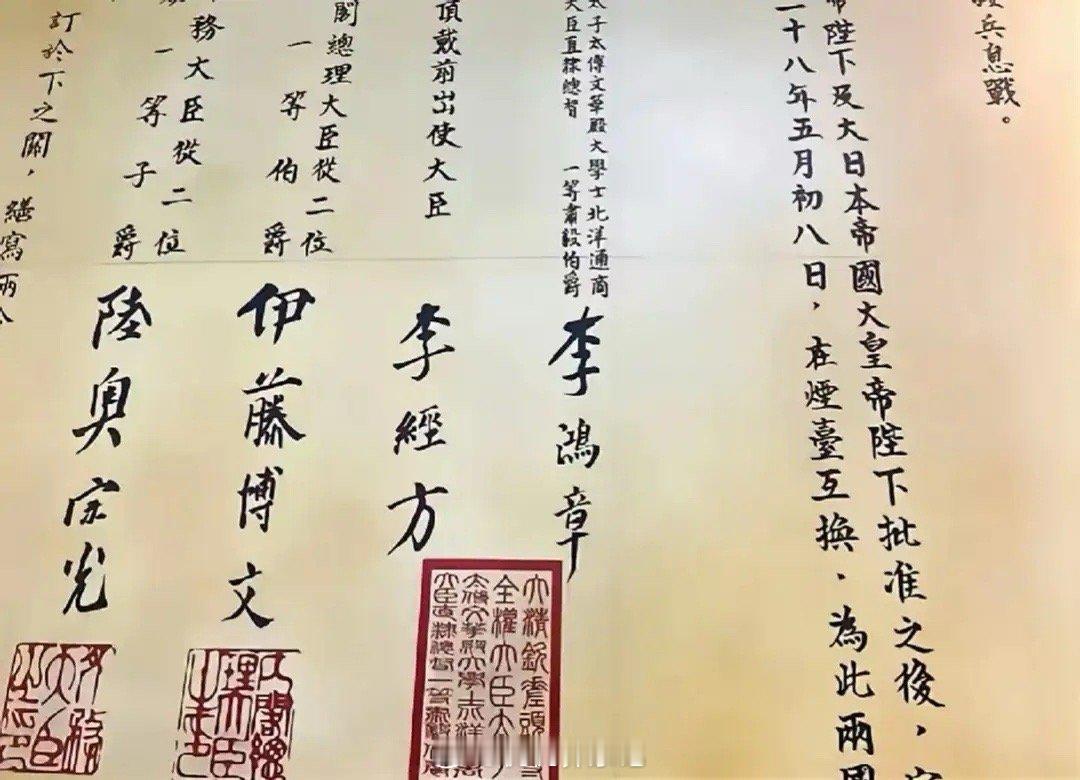 兵息戰。
帝陛下及大日本帝國大皇帝陛下批准之後，定
二十八年五月初八日，在煙臺互換．為此兩國
太子太傅文華殿大學士北洋通商
大臣直隸總督 一等肅毅伯爵
李鴻章
頂戴前出使大臣
李經方
閣總理大臣從二位
一等伯爵
伊藤博文
務大臣從二位
一等子爵
陸奧宗光
訂於下之關，繕寫兩
大清欽差頭等
全權大臣太子
太傅文華殿大學士北洋
大臣直隸總督一等肅毅伯
內閣總
理大臣
之印
外務
大臣
之印